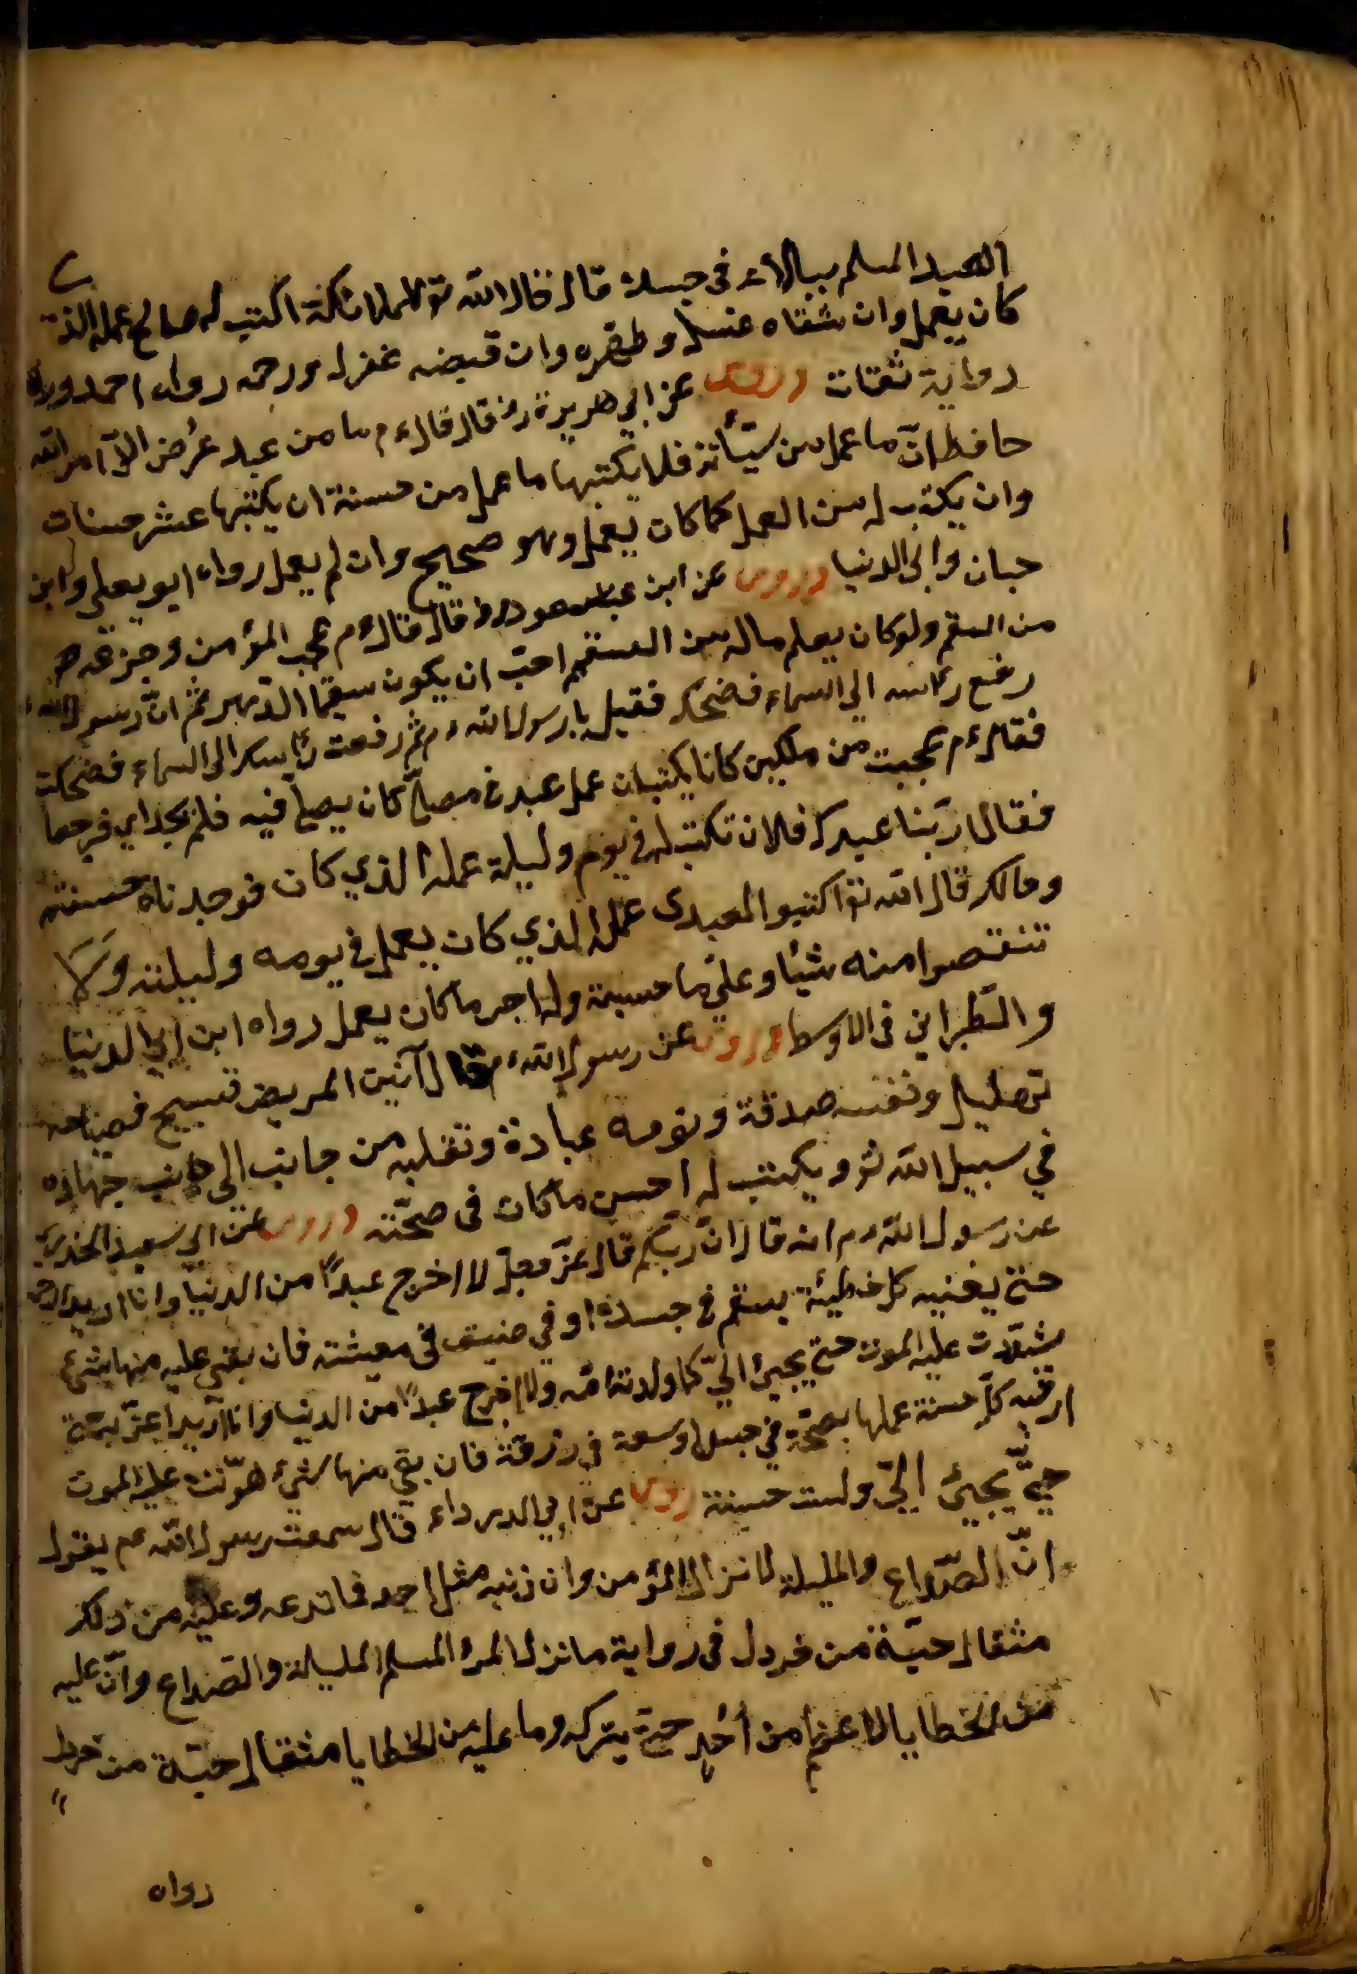 العبد المسلم ببلاء في جسده قال فقال الله تع للملائكة اكتب له صالح عمله الذي
كان يعمل وان شفاه غسله وطهره وان قبضه غفر له ورحمه رواه احمد ورواه
رواية ثقات وروى عن ابي هريرة رض قال قال ع م ما من عبد مرض الا امر الله
حافظان ما عمل من سيّأته فلا يكتبها ما عمل من حسنة ان يكتبها عشر حسنات
وان يكتب له من العمل كما كان يعمل وهو صحيح وان لم يعمل رواه ابو يعلي وابن
حبان وابي الدنيا وروى عن ابن مسعود رض قال قال ع م عجب المؤمن وجزعه
من السقم ولو كان يعلم ماله من السقم احبّ ان يكون سقيما الدّهر ثم انّ رسول الله
رفع رأسه الي السماء فضحك فقيل يا رسول الله ع م ثم رفعت رأسك الي السماء فضحكت
فقال ع م عجبت من ملكين كانا يكتبان عمل عبد في مصليّ كان يصلي فيه فلم يجداه فرجعا
فقالا ربّنا عبدك فلان نكتب له في يوم وليلة عمله الذي كان فوجدناه حبسته
ومالك قال الله تع اكتبوا لعبدى عمله الذي كان يعمل في يومه وليلته ولا
تنقصوا منه شيئا وعليّ ما حبسته وله اجر ما كان يعمل رواه ابن ابي الدنيا
والطبراني في الاوسط وروى عن رسول الله ع م قال آنين المريض تسبيح وصياحه
تهليل ونفسه صدقة ونومه عبادة وتقلبه من جانب الي جانب جهاده
في سبيل الله تع ويكتب له احسن ما كان في صحّته وروى عن ابي سعيد الخدريّ
عن رسول الله ع م انه قال انّ ربّكم قال عزّ وجلّ لا اخرج عبدًا من الدنيا وانا اريد ارحمه
حتي يفنيه كل خطيئة بسقم في جسده او في ضيق في معيشته فان بقي عليه منها شيء
شدّدت عليه الموت حتي يجيئ اليّ كما ولدته امّه ولا اخرج عبدًا من الدنيا وانا اريد اعذّبه حتي
ارقبه كلّ حسنة عملها بصحّة في جسده او سعة في رزقه فان بقي منها شيء هوّنت عليه الموت
حتيّ يجيئ اليّ وليست حسنة وروى عن ابي الدرداء قال سمعت رسول الله ع م يقول
انّ الصّداع والمليلة لا تزال المؤمن وان ذنبه مثل احد فما تدعه وعليه من ذلك
مثقال حبّة من خردل في رواية ما تزال المرء المسلم المليلة والصّداع وانّ عليه
من الخطايا لاعظم من أُحُدٍ حتيّ يتركه وما عليه من الخطايا مثقال حبّة من خردل
رواه